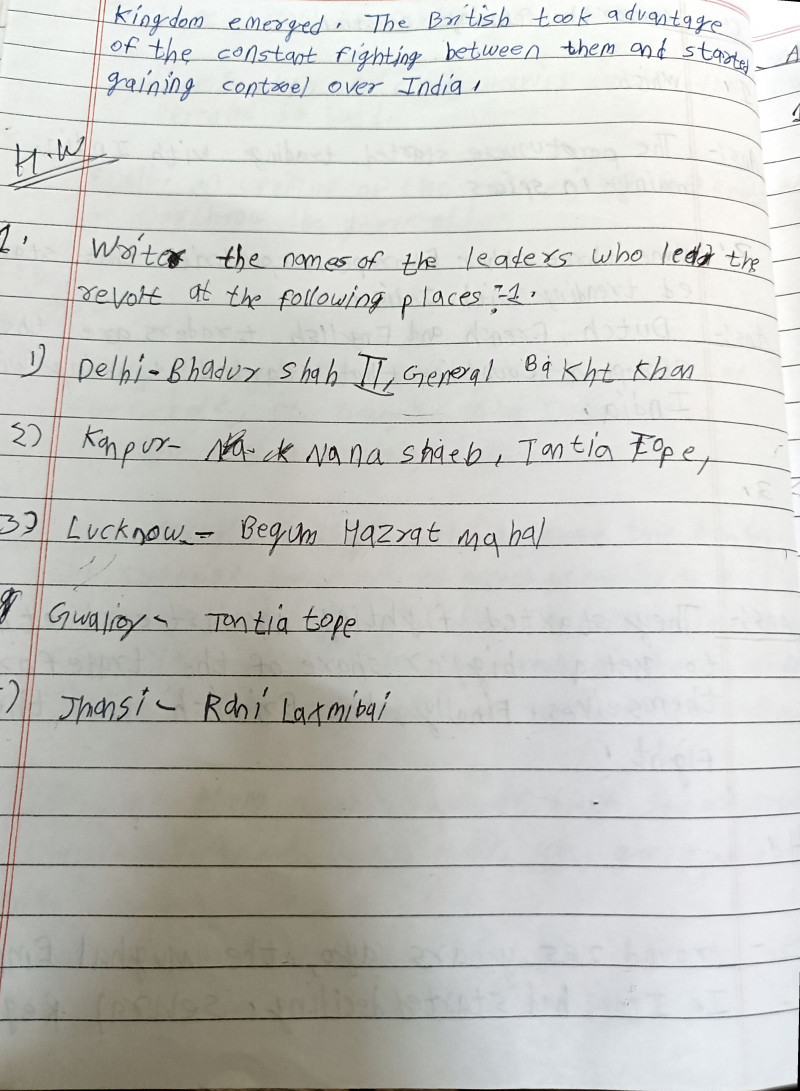 Kingdom emerged. The British took advantage
of the constant fighting between them and started
gaining controel over India.
H.W
1. Write the names of the leaders who led the
revolt at the following places :-1.
1) Delhi - Bhadur Shah II, General Bakht Khan
2) Kanpur - Nana Shaeb, Tantia Tope,
3) Lucknow - Begum Hazrat Mahal
Gwalior - Tantia tope
) Jhansi - Rani Laxmibai